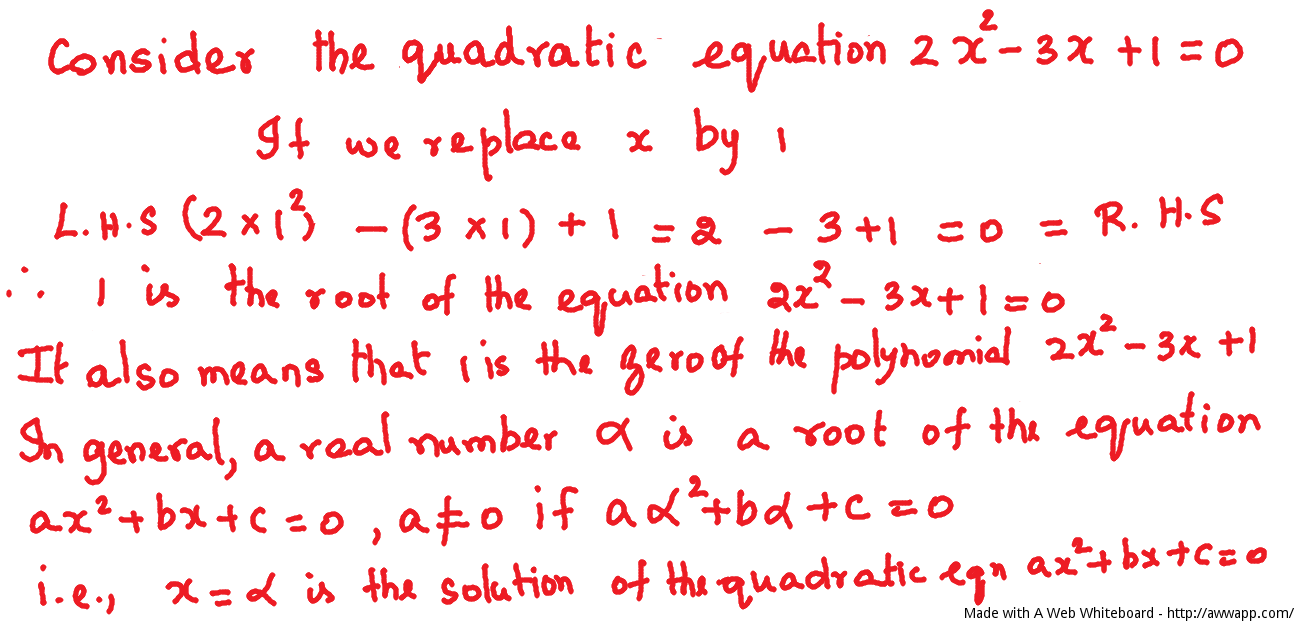 Consider the quadratic equation 2x² - 3x + 1 = 0
If we replace x by 1
L.H.S (2 × 1²) - (3 × 1) + 1 = 2 - 3 + 1 = 0 = R.H.S
∴ 1 is the root of the equation 2x² - 3x + 1 = 0
It also means that 1 is the zero of the polynomial 2x² - 3x + 1
In general, a real number α is a root of the equation
ax² + bx + c = 0, a ≠ 0 if aα² + bα + c = 0
i.e., x = α is the solution of the quadratic eqn ax² + bx + c = 0
Made with A Web Whiteboard - http://awwapp.com/